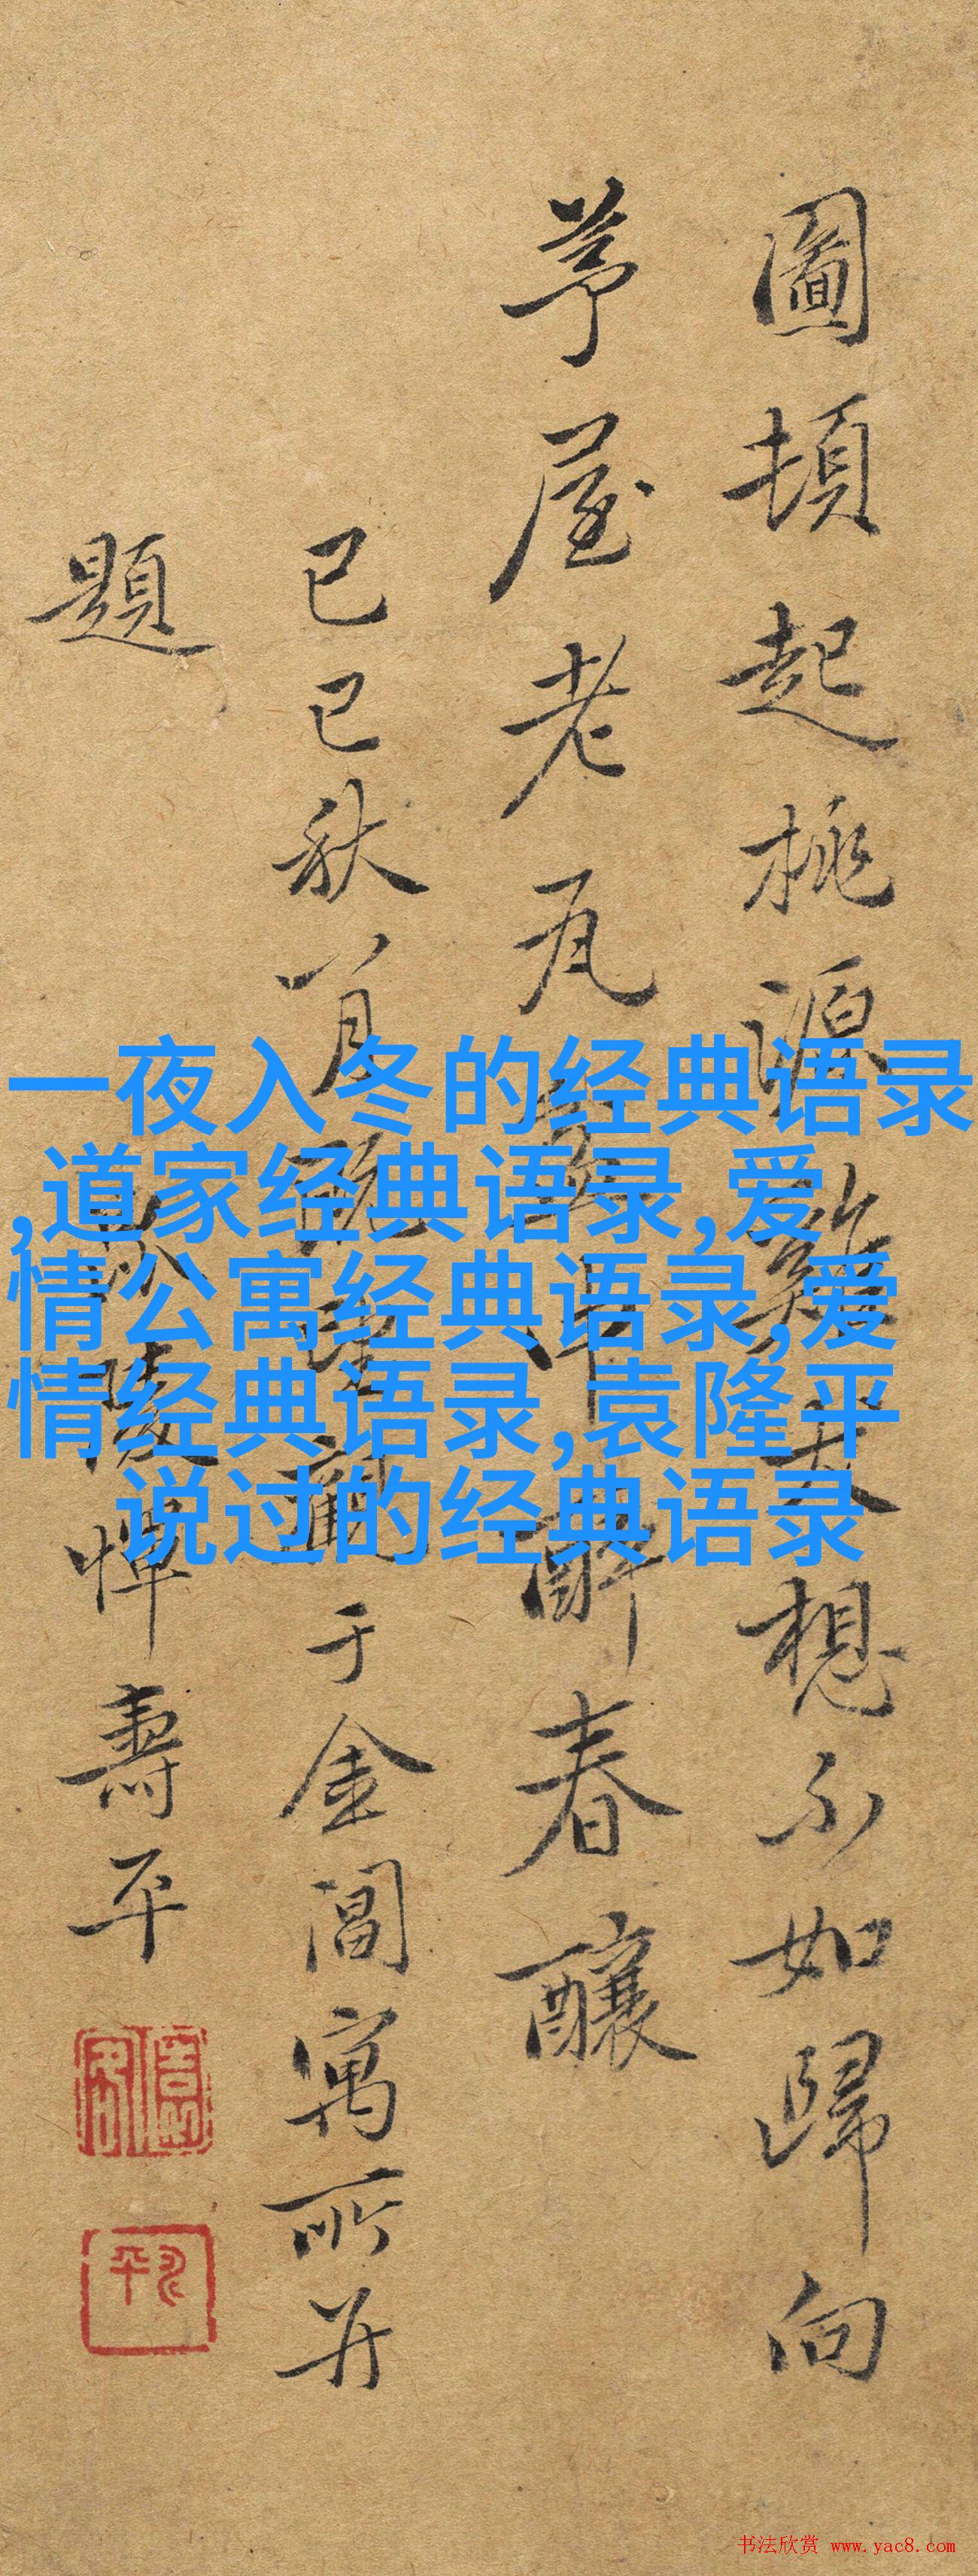 一夜入冬的经典语录
,道家经典语录,爱
情公寓经典语录,爱
情经典语录,袁隆平
说过的经典语录
圖頓起桃源想不如歸向
茅屋老瓦中醉春釀
己巳秋八月觀于金閶寓所并
題陵惲壽平
书法欣赏 www.yac8.com